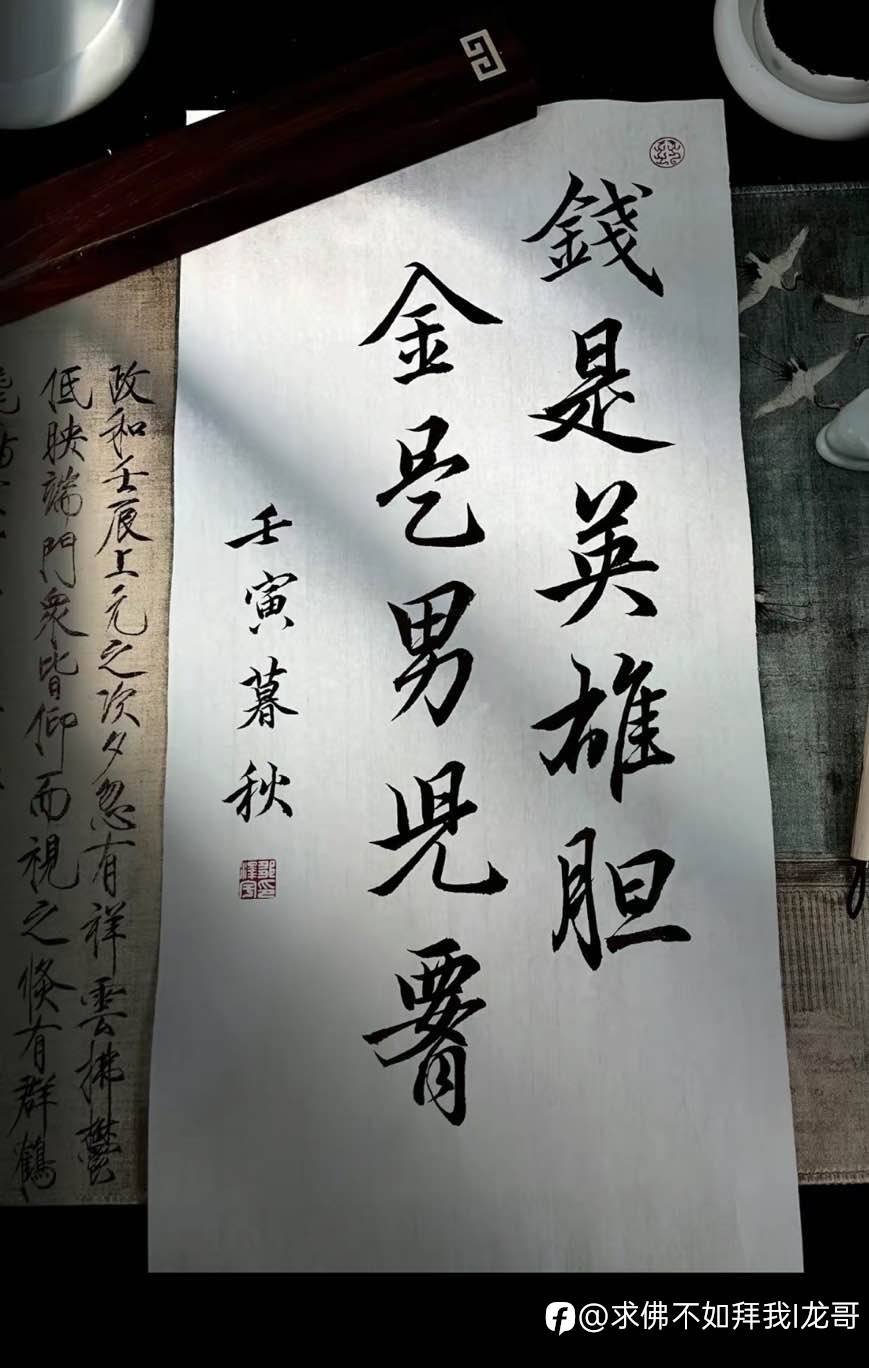 錢是英雄胆
金是男兒腰
壬寅暮秋
政和壬辰上元之次夕忽有祥雲拂鬱
低映端門衆皆仰而視之倏有群鶴
@求佛不如拜我I龙哥